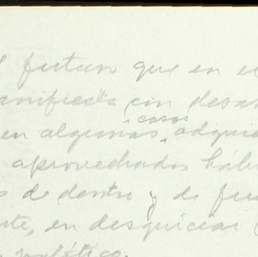 futuro que en e
anifiesta con desas
casos
en algunos, adqui
aprovechados hábi
s de dentro y de fue
te, en desquiciar
político.